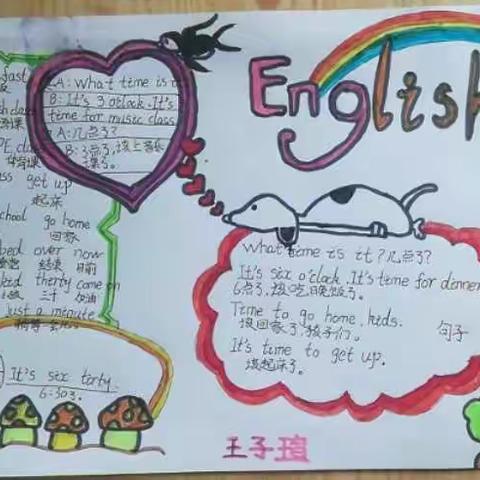 English
A: What time is it
B: It's 3 o'clock. It's
time for music class
A: 几点了?
B: 3点了,该上音乐
课了。
get up
起床
go home
回家
bed over now
结束 目前
just a minute
It's six torty.
6:30了.
What time is it? 几点了?
It's six o'clock. It's time for dinner
6点了,该吃晚饭了。
Time to go home, kids.
该回家了,孩子们。
句子
It's time to get up.
该起床了。
王子瑄